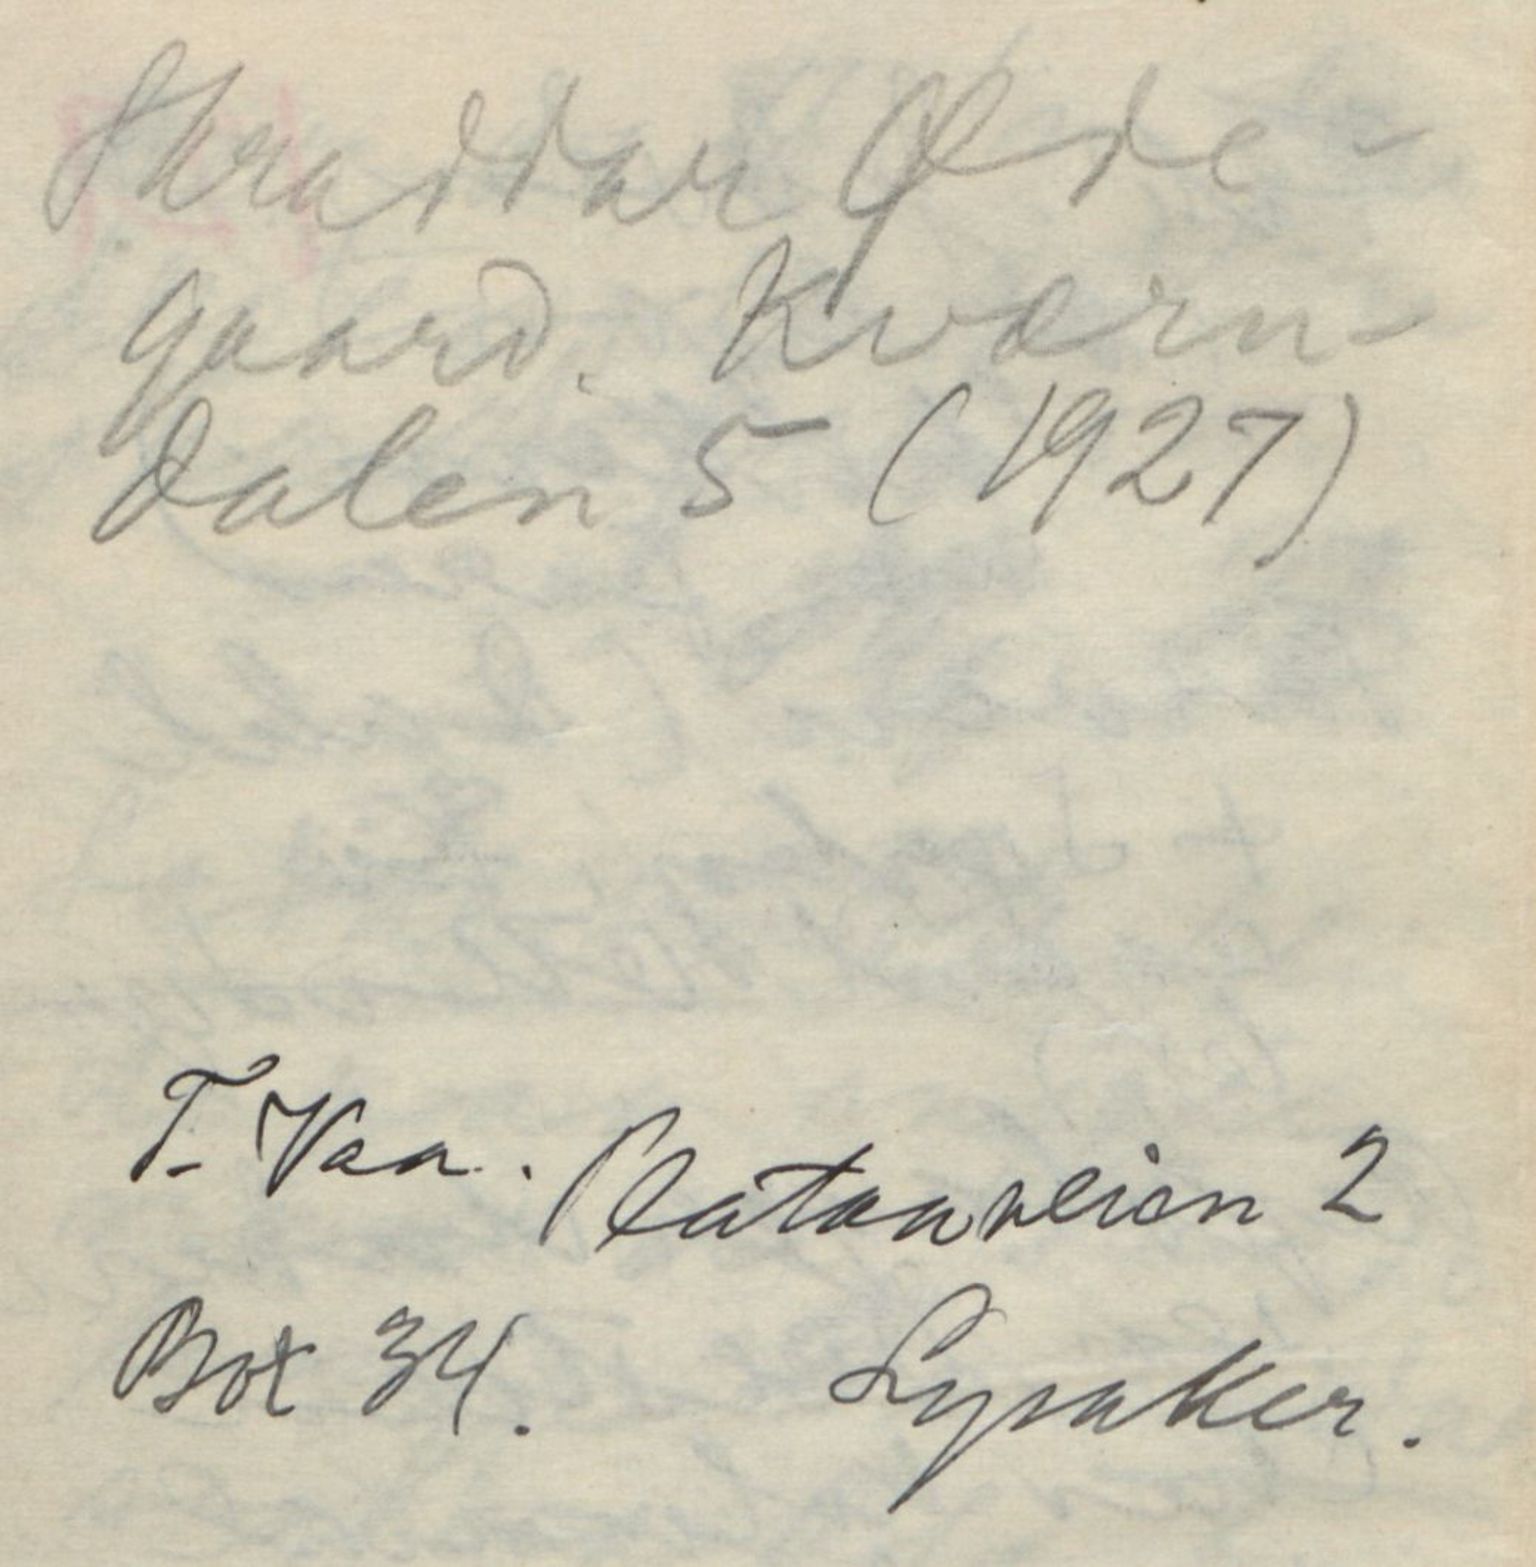 Skraddar Øde-
gaard. Kværn-
dalen 5 (1927)
T. Vaa. Plataaveien 2
Box 34. Lysaker.